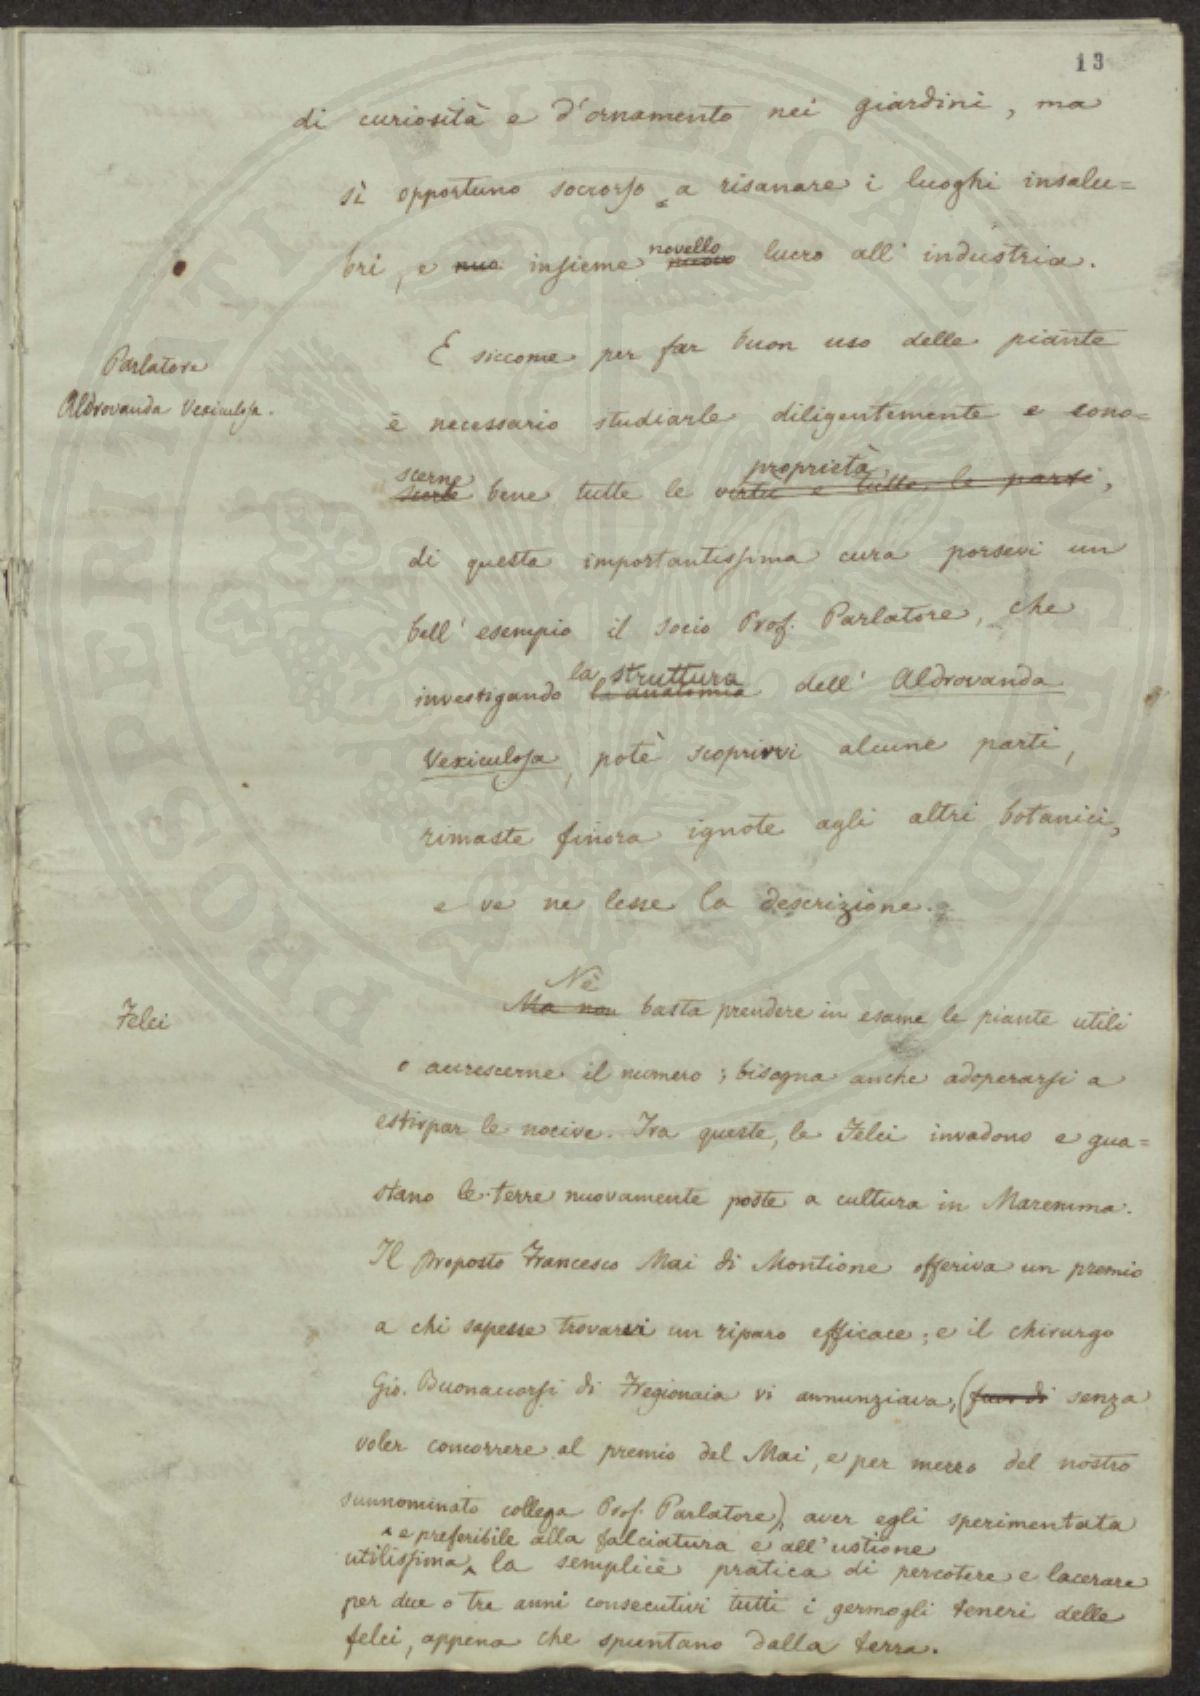 13
di curiosità e d'ornamento nei giardini, ma
sì opportuno soccorso a risanare i luoghi insalu=
bri, e nuo insieme novello nuovo lucro all'industria.
Parlatore
Aldrovanda Vexiculosa.
E siccome per far buon uso delle piante
è necessario studiarle diligentemente e cono=
scerne
bene tutte le proprietà virtù e tutte le parti,
di questa importantissima cura porsevi un
bell'esempio il socio Prof. Parlatore, che
investigando la struttura la anatomia dell'Aldrovanda
Vexiculosa, potè scoprirvi alcune parti,
rimaste finora ignote agli altri botanici,
e ve ne lesse la descrizione.
Felci
Nè
Ma non basta prendere in esame le piante utili
o accrescerne il numero; bisogna anche adoperarsi a
estirpar le nocive. Tra queste, le Felci invadono e gua=
stano le terre nuovamente poste a cultura in Maremma.
Il Proposto Francesco Mai di Montione offeriva un premio
a chi sapesse trovarvi un riparo efficace; e il chirurgo
Gio. Buonaccorsi di Fregionaia vi annunziava, (fuor di senza
voler concorrere al premio del Mai, e per mezzo del nostro
sunnominato collega Prof. Parlatore), aver egli sperimentata
e preferibile alla falciatura e all'ustione
utilissima la semplice pratica di percotere e lacerare
per due o tre anni consecutivi tutti i germogli teneri delle
felci, appena che spuntano dalla terra.
PROSPERITATI PUBLICAE AUGENDAE